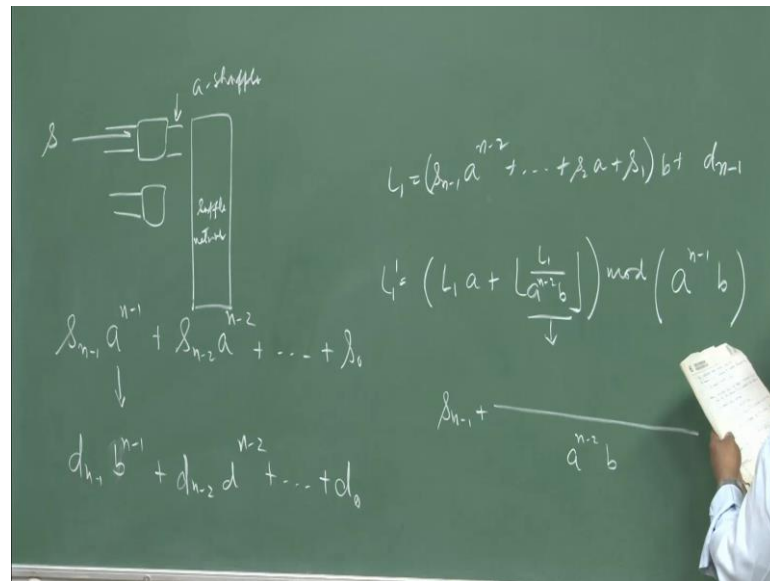 a-shuffle
S
shuffle
network
S_{n-1} a^{n-1} + S_{n-2} a^{n-2} + ... + S_0
↓
d_{n-1} b^{n-1} + d_{n-2} d^{n-2} + ... + d_0
L_1 = (S_{n-1} a^{n-2} + ... + S_2 a + S_1) b + d_{n-1}
L_1' = (L_1 a + ⌊L_1 / a^{n-2} b⌋) mod (a^{n-1} b)
↓
S_{n-1} + ———
a^{n-2} b